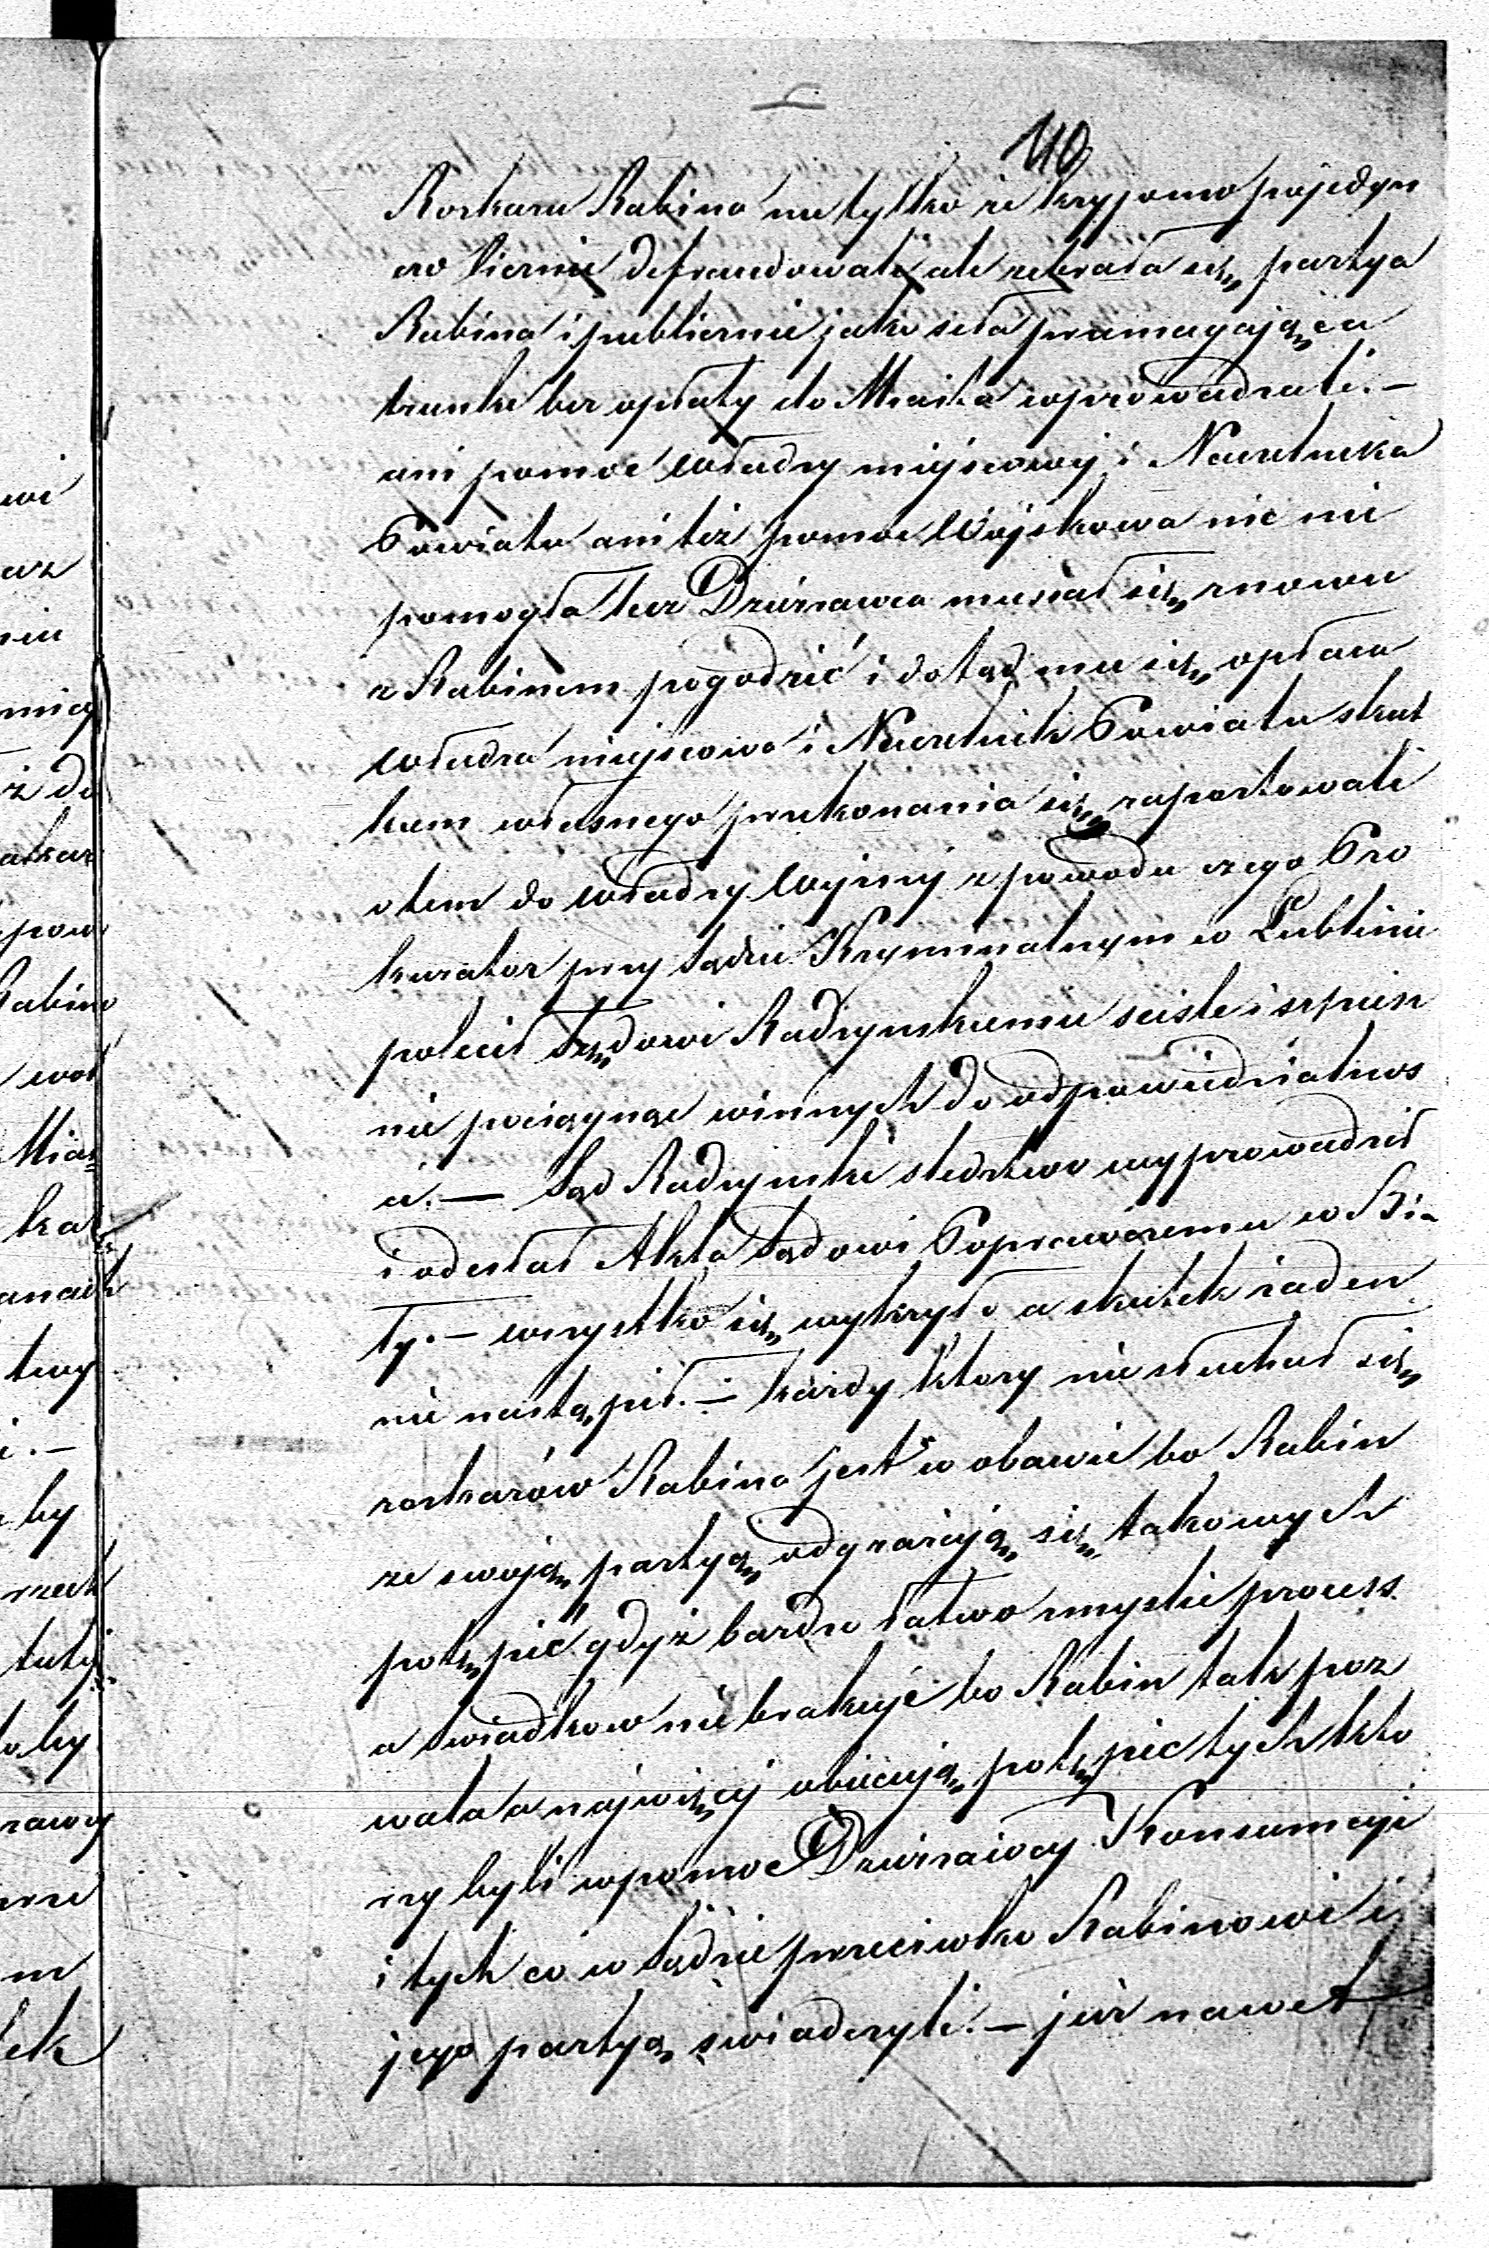 110
Roskazu Rabina nie tylko że kryjomo pojedyn
czo Piernie defraudowali, ale zebrała się partya
Rabina i publicznie jako siła pramagająca
trunki bez opłaty do Miasta wprowadzali. –
ani pomoc władzy miejscowej i Naczelnika
Powiatu ani też pomoc Wojskowa nic nie
pomogła lecz Dzierzawca musiał się znowu
z Rabinem pogodzić i dotąd mu się opłaca
władza miejscowa i Naczelnik Powiatu skut
kiem własnego przekonania się raportowali
o tem do władzy Wyższej z powodu czego Pro
kurator przy Sądzie Kryminalnym w Lublinie
polecił Sądowi Radzynskiemu scisle i spiesz
nie pociągnąc winnych do odpowiedzialnos
ci. — Sąd Radzynski sledztwo wyprowadził
i odesłał Akta Sądowi Poprawczemu w Bia
ły. – wszystko się wykryło a skutek żaden
nie nastąpił. – każdy ktory nie słuchał się
roskazów Rabina jest w obawie bo Rabin
ze swoją partyą odgrażają się takowych
potępić gdyż bardzo łatwo zmyslić process
a swiadkow nie brakuje bo Rabin tak poz
wala a najwięcej obiecują potępic tych kto
rzy byli w pomoc Dzierzawcy Konsumcyi
i tych co w Sądzie przeciwko Rabinowi i
jego partyą swiadczyli. – już nawet